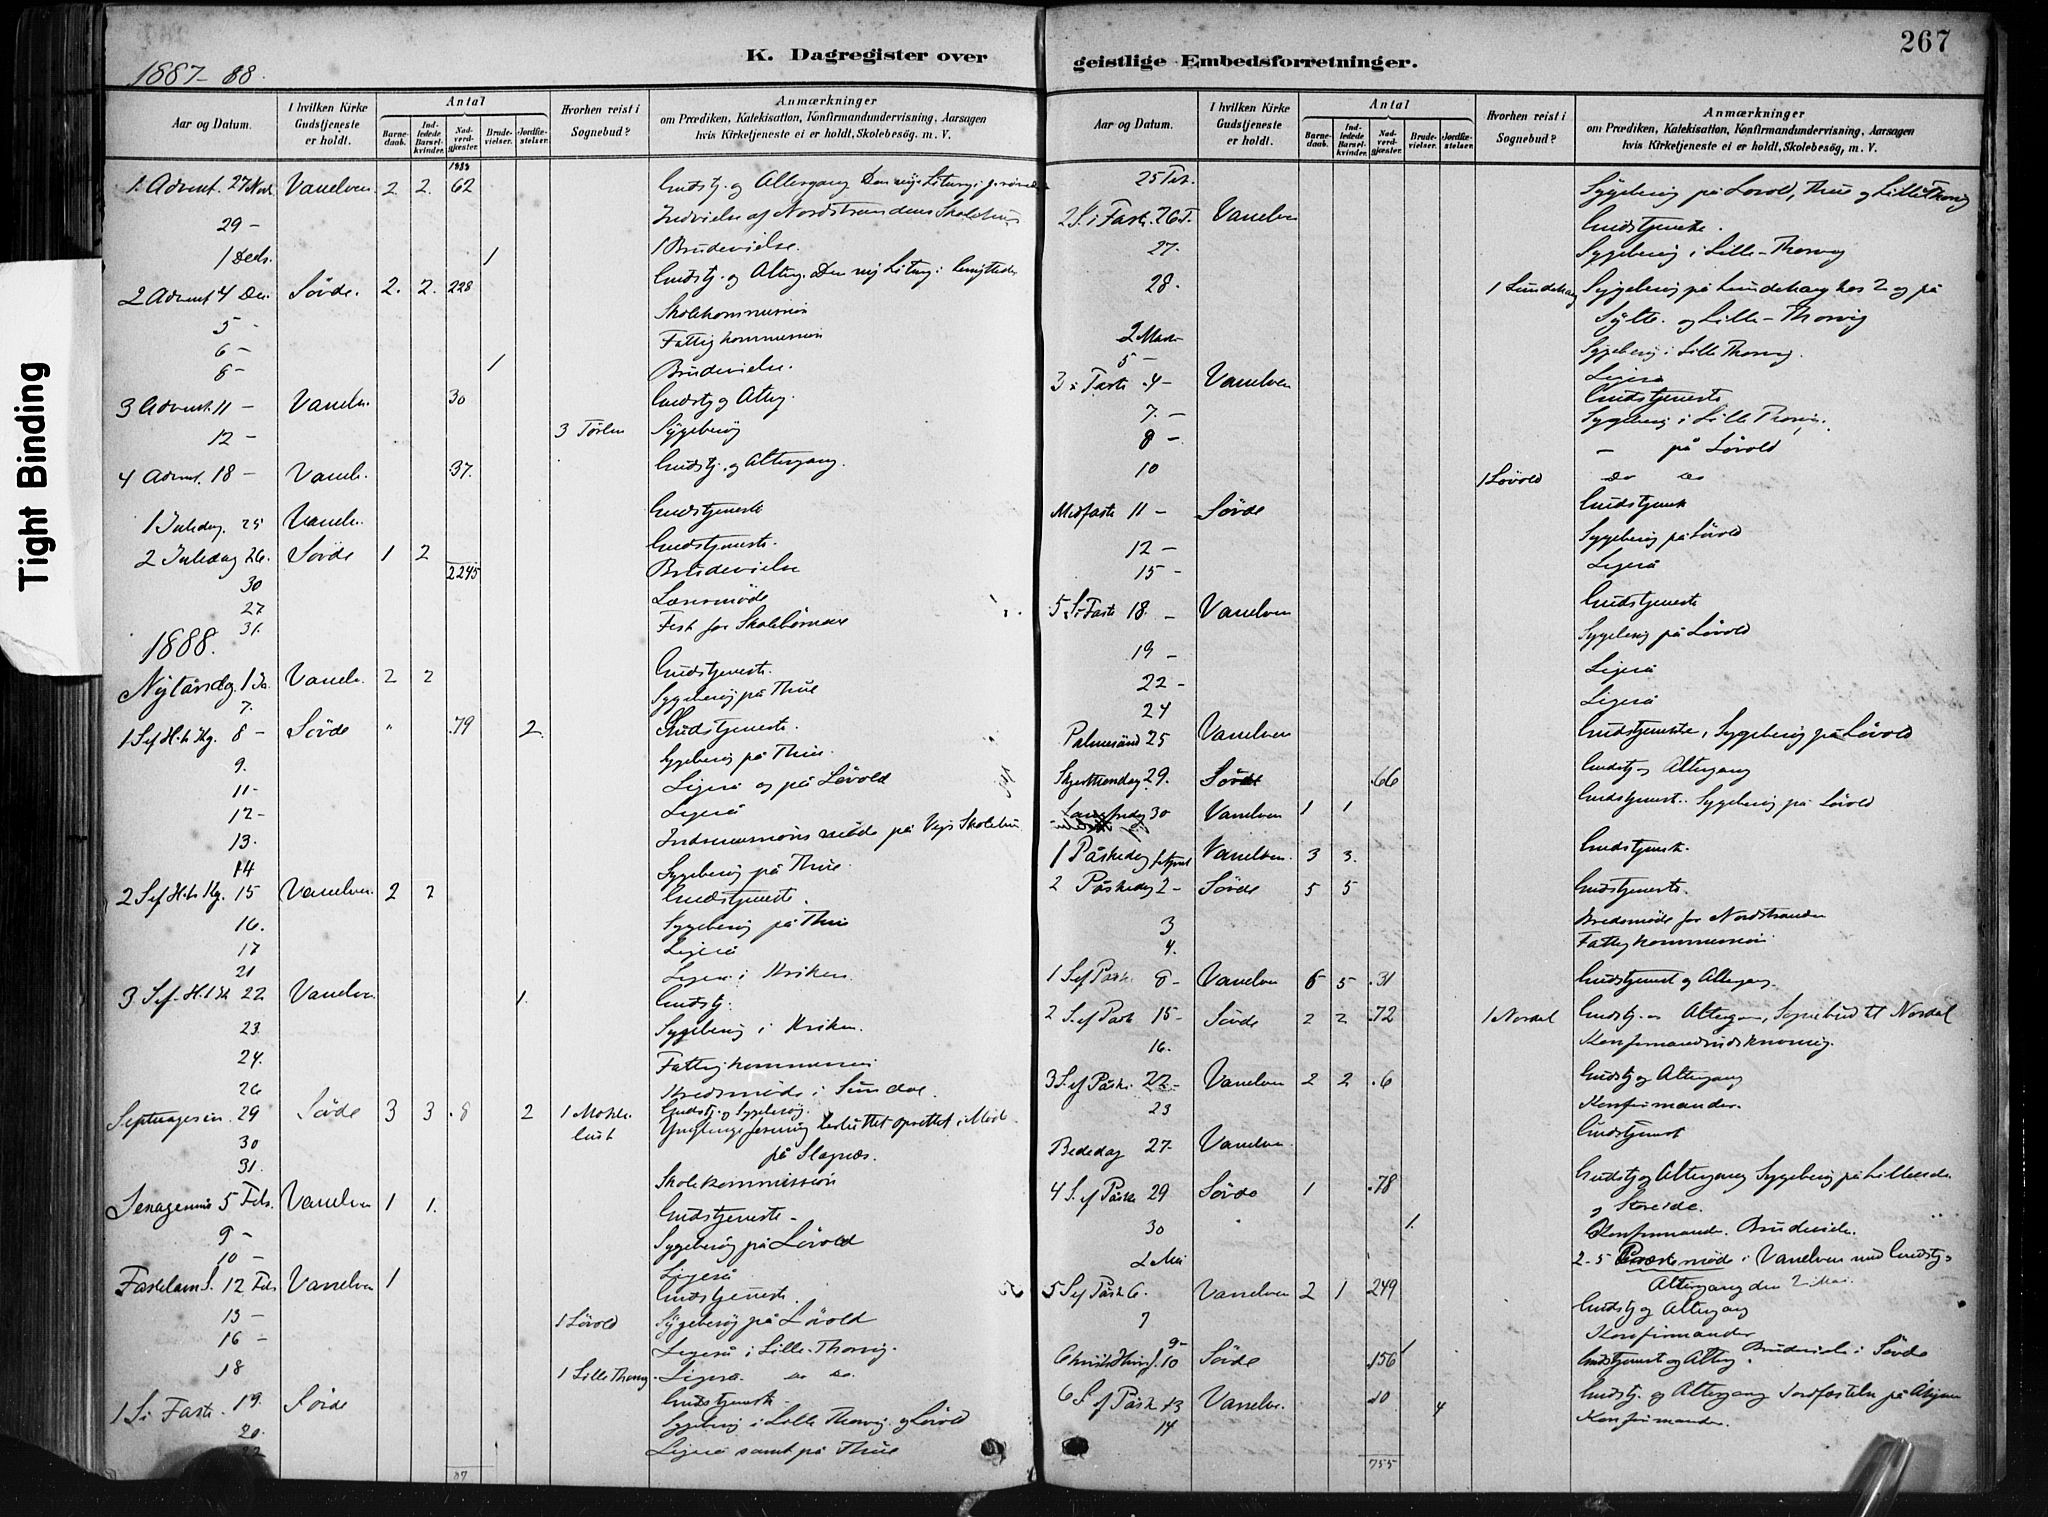 267
K. Dagregister over
geistlige Embedsforretninger.
1887-88.
Tight Binding
Aar og Datum.
I hvilken Kirke Gudstjeneste er holdt.
Antal
Barnedaab.
Indledede Barselkvinder.
Nadverdgjæster.
Brudevielser.
Jordfæstelser.
Hvorhen reist i Sognebud?
Anmærkninger
om Prædiken, Katekisation, Konfirmandundervisning, Aarsagen
hvis Kirketjeneste ei er holdt, Skolebesög, m. V.
1. Advent. 27 Nov. Vanelven 2. 2. 62 Gudstj. og Altergang
29 - Indvielse af Nordstrandens Skolehus
1 Decb. 1 1 Brudevielse.
2 Advent 4 Dec. Sövde. 2. 2. 228 Gudstj. og Alterg.
5 - Skolekommission
6 - Fattigkommission
8 - 1 Brudevielse.
3 Advent. 11 - Vanelv. 30 Gudstj og Alterg.
12 - 3 Sygebesög
4 Advent. 18 - Vanelv. 37. Gudstj. og Altergang.
1 Juledag. 25 Vanelv. Gudstjeneste
2 Juledag 26. Sövde 1 2 Gudstjeneste.
2245
30 Brudevielse
27 Læsemöde
31. Fest for Skolebörnene
1888.
Nytårsdg. 1 Ja. Vanelv. 2 2 Gudstjeneste.
7. Sygebesög på Thue
1 S. ef. H. tr. Kg. 8 - Sövde " 79 2. Gudstjeneste.
9. Sygebesög på Thue.
11 - Ligeså og på Lövold
12 - Ligeså
13. möde på Skolehus
14 Sygebesög på Thue.
2 S. ef. H. tr. Kg. 15 Vanelven. 2 2 Gudstjeneste.
16. Sygebesög på Thue
17 Ligeså
21 Ligeså i Kriken.
3 S. ef. H. 22 Vanelven. 1. Gudstj.
23. Sygebesög i Kriken.
24. Fattigkommission
26 Kredsmöde i Sundal.
Septuagesim. 29 Sövde 3 3 8 2 1 Gudstj. og Sygebesög.
30 Ynglingeforening besluttet oprettet i Möde
på Slagnæs.
31. Skolekommission
5 Feb. Vanelven 1 1. Gudstjeneste -
9 - Sygebesög på Lövold
10 - Ligeså
Fastelavn S. 12 Feb Vanelven 1 Gudstjeneste.
13 - 1 Lövold Sygebesög på Lövold
16 - Ligeså i Lille-Thorvig.
18 1 Lille Thorvig. Ligeså. do do.
1 S i Faste. 19. Sövde Gudstjeneste.
20. Sygebesög i Lille Thorvig. og Lövold
22 Ligeså samt på Thue
Aar og Datum.
I hvilken Kirke Gudstjeneste er holdt.
Antal
Barnedaab.
Indledede Barselkvinder.
Nadverdgjæster.
Brudevielser.
Jordfæstelser.
Hvorhen reist i Sognebud?
Anmærkninger
om Prædiken, Katekisation, Konfirmandundervisning, Aarsagen
hvis Kirketjeneste ei er holdt, Skolebesög, m. V.
25 Feb. Sygebesög på Lövold, Thue og Lille Thorvig
2 S. i Faste. 26 F. Vanelven Gudstjeneste.
27. Sygebesög i Lille-Thorvig
28. 1 Lundehaug Sygebesög på Lundehaug hos 2 og på
Sylte. og Lille-Thorvig
2 Marts Sygebesög i Lille Thorvig.
5 - Ligeså
3 i Faste. 4 - Vanelven Gudstjeneste
7. - Sygebesög i Lille Thorvig.
8 - - på Lövold
10 1 Lövold do do
Midfaste 11 - Sövde Gudstjeneste
12 - Sygebesög på Lövold
15 - Ligeså
5 S i Faste 18. - Vanelven Gudstjeneste
19 - Sygebesög på Lövold
22 - Ligeså
24 Ligeså
Palmesönd 25 Vanelven Gudstjeneste, Sygebesög på Lövold
Skjærthorsdag. 29. Sövde 66 Gudstj og Altergang
Langfredag 30 Vanelven 1 1 Gudstjeneste. Sygebesög på Lövold
1 Påskedag 1 April Vanelven. 3 3. Gudstjeneste.
2 Påskedag 2 - Sövde 5 5 Gudstjeneste.
3 Kredsmöde for Nordstranden
4. Fattigkommission
1 S ef Påsk. 8 - Vanelven 6 5 31 Gudstjenest og Altergang
2 S. ef Påsk 15 - Sövde 2 2 72 1 Nordal Gudstj. og Altergan, Sognebud til Nordal
16. Konfirmandudskrivning.
3 S. ef Påske. 22 - Vanelven 2 2 6 Gudstj og Altergang
23 Konfirmander.
Bededag 27. Vanelven. Gudstjenest
4 S. ef Påske 29 Sövde 1 78 Gudstj og Altergang Sygebesög på
og Storeide.
30 1. Konfirmander. Brudeviels.
2 Mai 2-5 Præstemöde i Vanelven med Gudstj og
Altergang den 2 Mai.
5 S ef Påsk 6. Vanelven 2 1 249 Gudstj og Altergang
7 Konfirmander
9 - 1 Brudevielse i Sövde
Christi Himf. 10 Sövde 156 Gudstjenest og Alterg.
6 S. ef Påsk 13 Vanelv. 10 4 Gudstj. og Altergang Jordfæstelse på
14 Konfirmander.
755